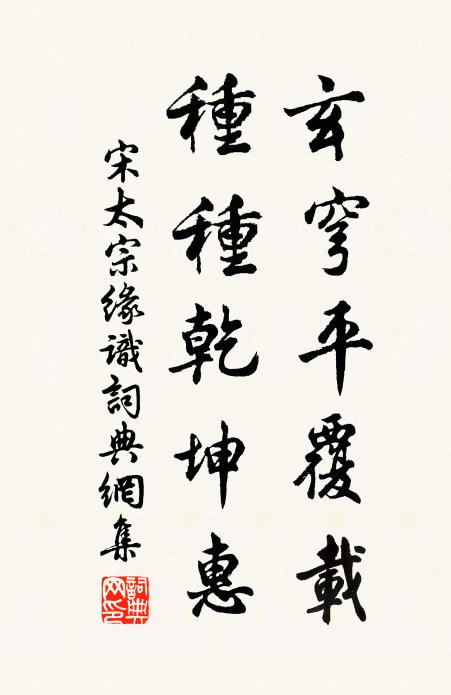 玄穹平覆載
種種乾坤惠
宋太宗緣識詞典網集
詞典网印